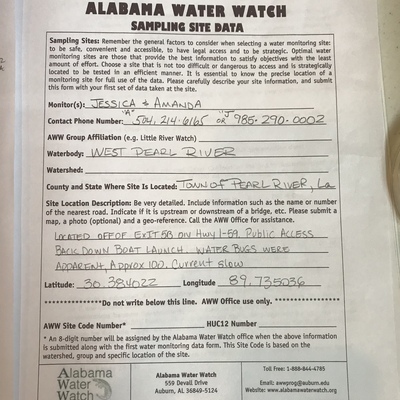 ALABAMA WATER WATCH
SAMPLING SITE DATA
Sampling Sites: Remember the general factors to consider when selecting a water monitoring site:
to be safe, convenient and accessible, to have legal access and to be strategic. Optimal water
monitoring sites are those that provide the best information to satisfy objectives with the least
amount of effort. Choose a site that is not too difficult or dangerous to access and is strategically
located to be tested in an efficient manner. It is essential to know the precise location of a
monitoring site for full use of the data. Please carefully describe your site information, and submit
this form with your first set of data taken at the site.
Monitor(s): JESSICA & AMANDA
"A" "J"
Contact Phone Number: 504.214.6165 or 985-290-0002
AWW Group Affiliation (e.g. Little River Watch)
Waterbody: WEST PEARL RIVER
Watershed:
County and State Where Site Is Located: TOWN OF PEARL RIVER, La
Site Location Description: Be very detailed. Include information such as the name or number
of the nearest road. Indicate if it is upstream or downstream of a bridge, etc. Please submit a
map, a photo (optional) and a geo-reference. Call the AWW Office for assistance.
LOCATED OFF OF EXIT 5B ON HWY I-59. PUBLIC ACCESS
BACK DOWN BOAT LAUNCH. WATER BUGS WERE
APPARENT, APPROX 100. Current slow
Latitude: 30.384022 Longitude 89.735036
***************Do not write below this line. AWW Office use only. ******************
AWW Site Code Number* HUC12 Number
* An 8-digit number will be assigned by the Alabama Water Watch office when the above information
is submitted along with the first water monitoring data form. This Site Code is based on the
watershed, group and specific location of the site.
Alabama
Water
Watch
Alabama Water Watch
559 Devall Drive
Auburn, AL 36849-5124
Toll Free: 1-888-844-4785
Email: awwprog@auburn.edu
Website: www.alabamawaterwatch.org